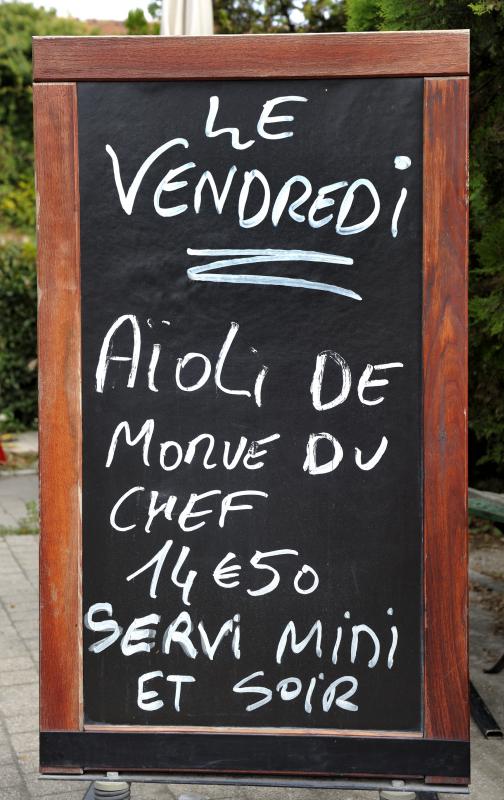 LE
VENDREDi
AÏOLi DE
MORUE DU
CHEF
14€50
SERVi MiDi
ET SOiR